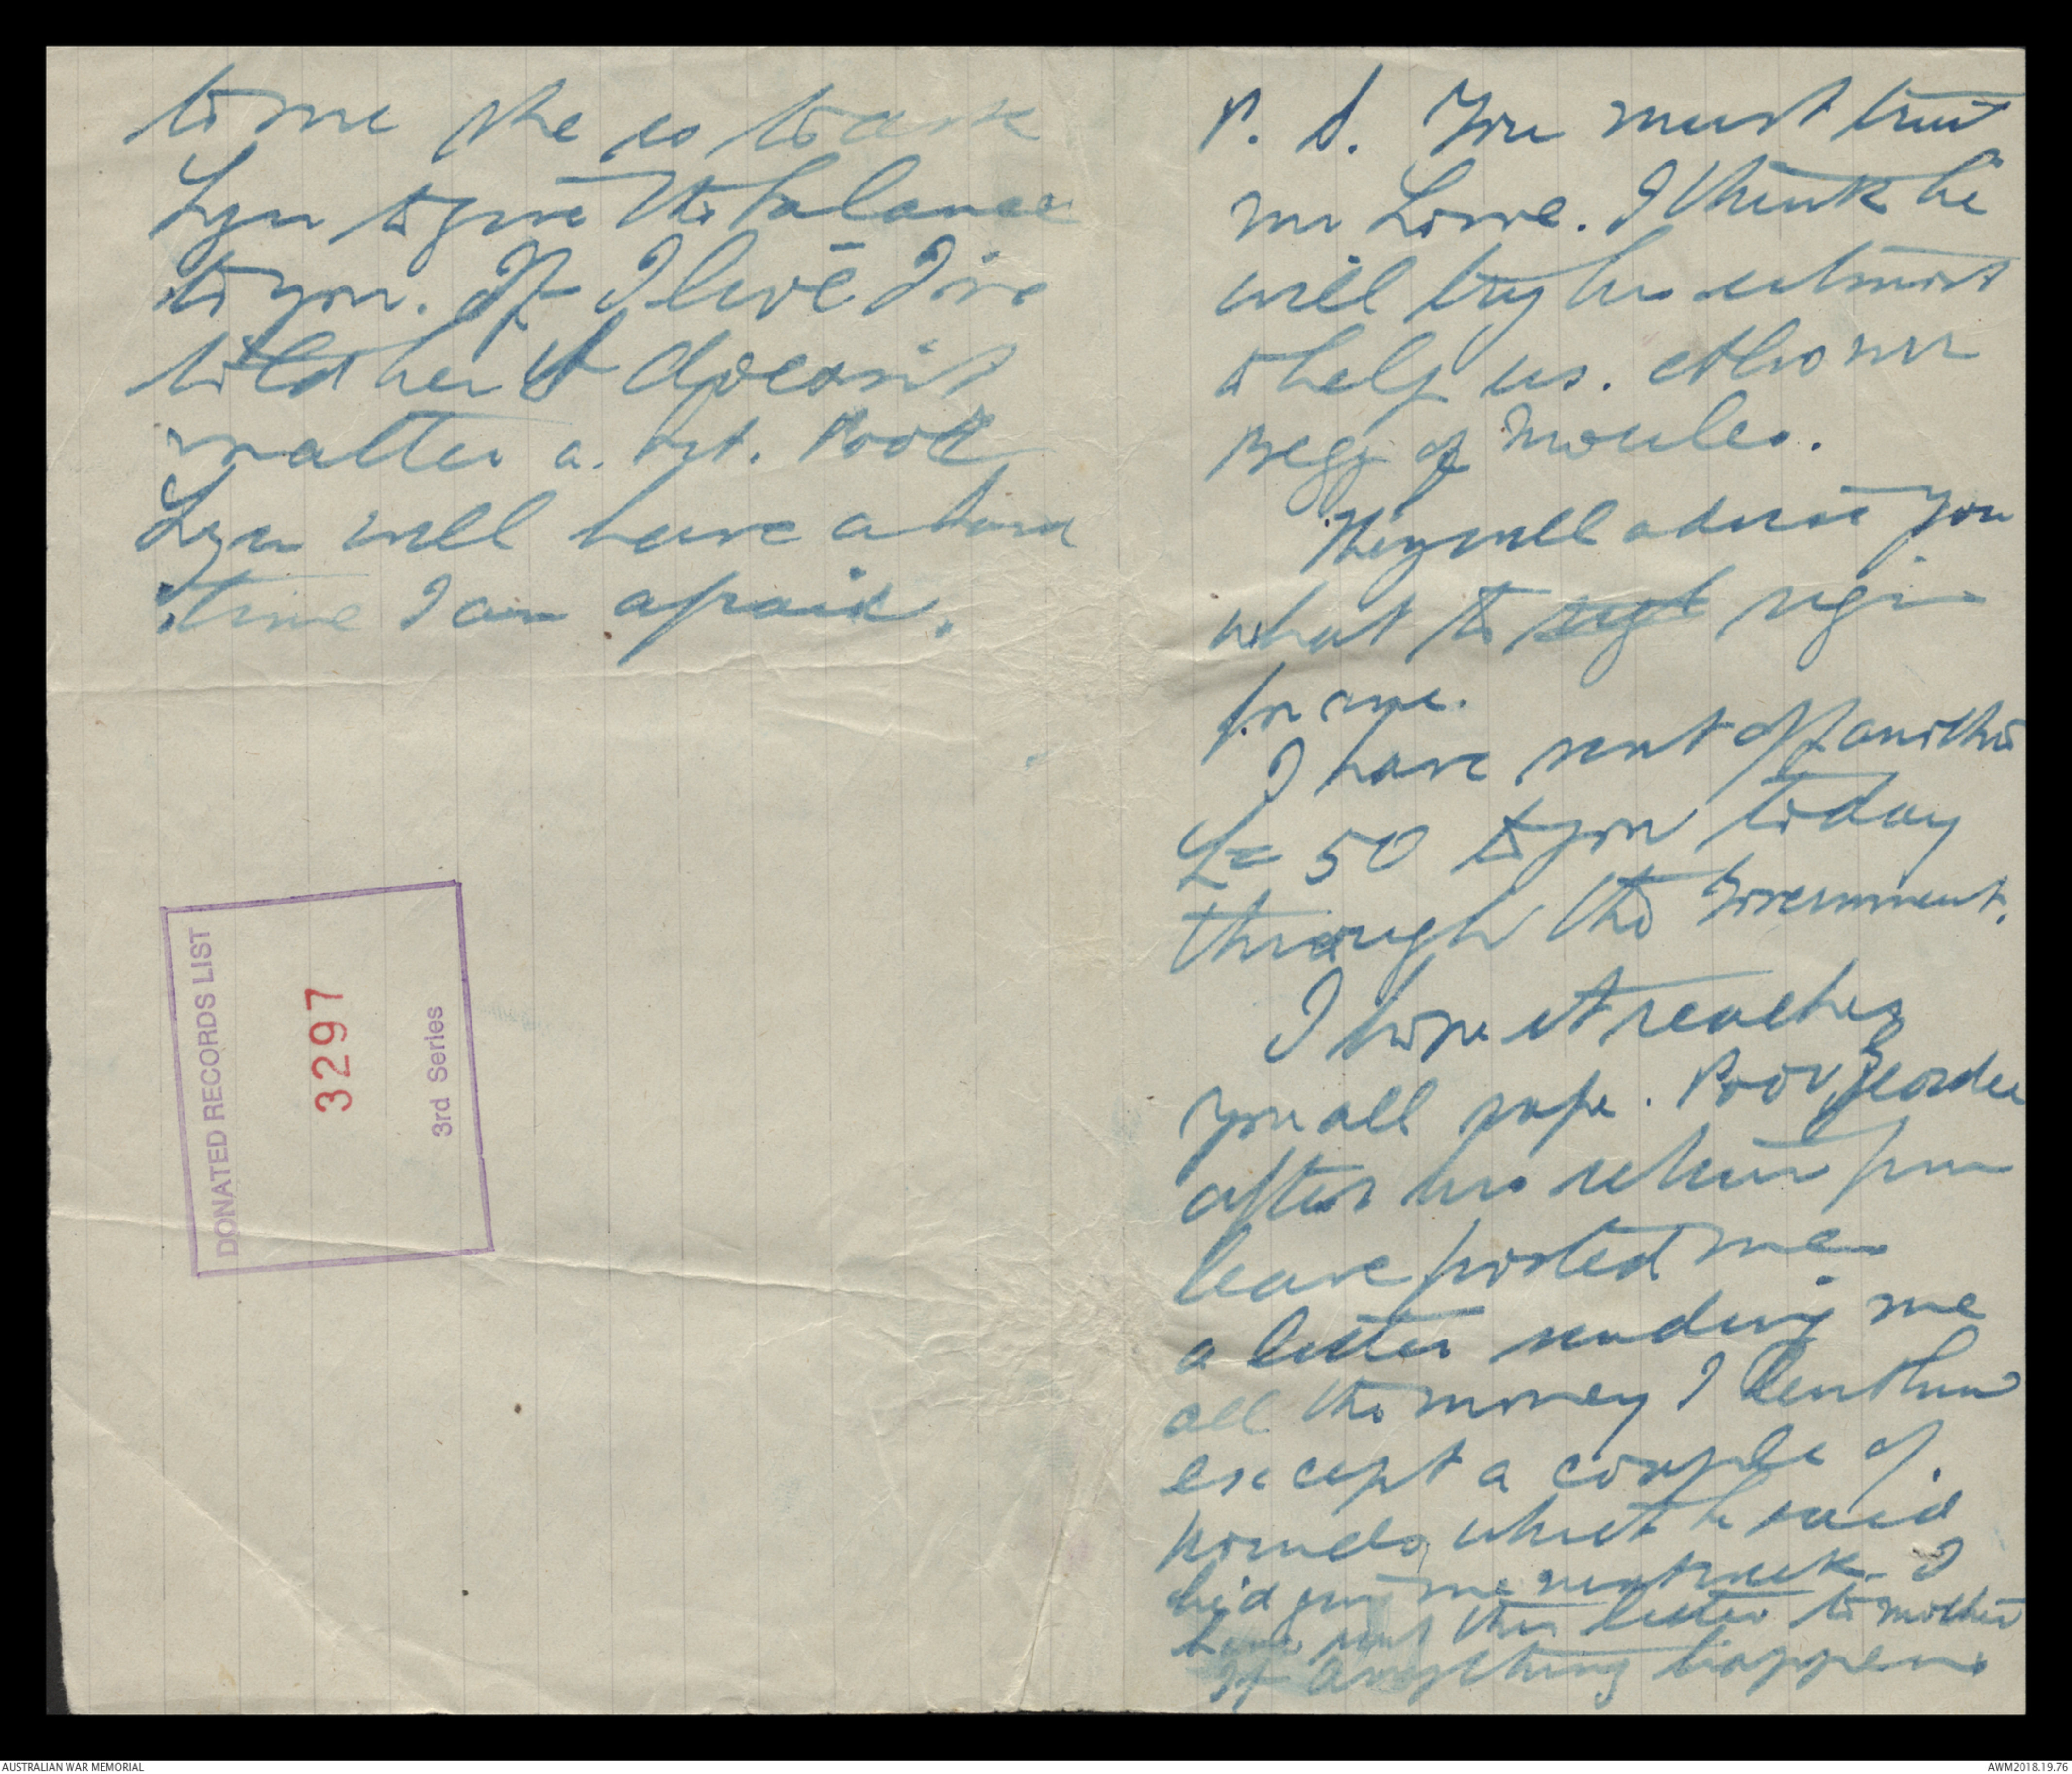 P. S. You must trust
Mr Lowe. I think he
will try his utmost
to help us. Also Mr
Begg of Moules.
They will advise you
what to sign
for me.
I have sent off another
£= 50 to you today
through the Government.
I hope it reaches
you all safe. Poor Geordie
after his return from
leave posted me
a letter sending me
all the money I lent him
except a couple of
pounds which he said
he'd give me next week. I
have sent this letter to mother
If anything happens
to me she is to ask
Lyn to give the balance
to you. If I live I've
told her it doesn't
matter a bit. Poor
Lyn will have a hard
time I am afraid.
DONATED RECORDS LIST
3297
3rd Series
AUSTRALIAN WAR MEMORIAL
AWM2018.19.76